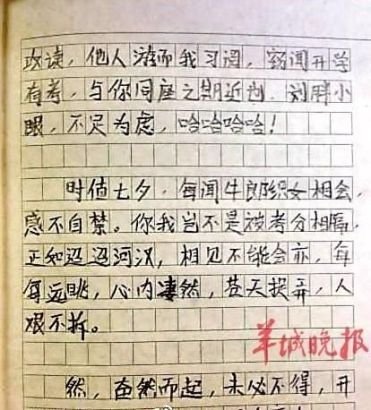 攻读，他人游而我习阅，窃闻开学
有考，与你同座之期近到。刘胖小
眼，不足为虑，哈哈哈哈！
时值七夕，每闻牛郎织女相会，
感不自禁。你我岂不是被考分相隔，
正如迢迢河汉，相见不能会亦，每
每远眺，心内凄然，苍天捉弄，人
艰不拆。
羊城晚报
然，奋然而起，未必不得，开